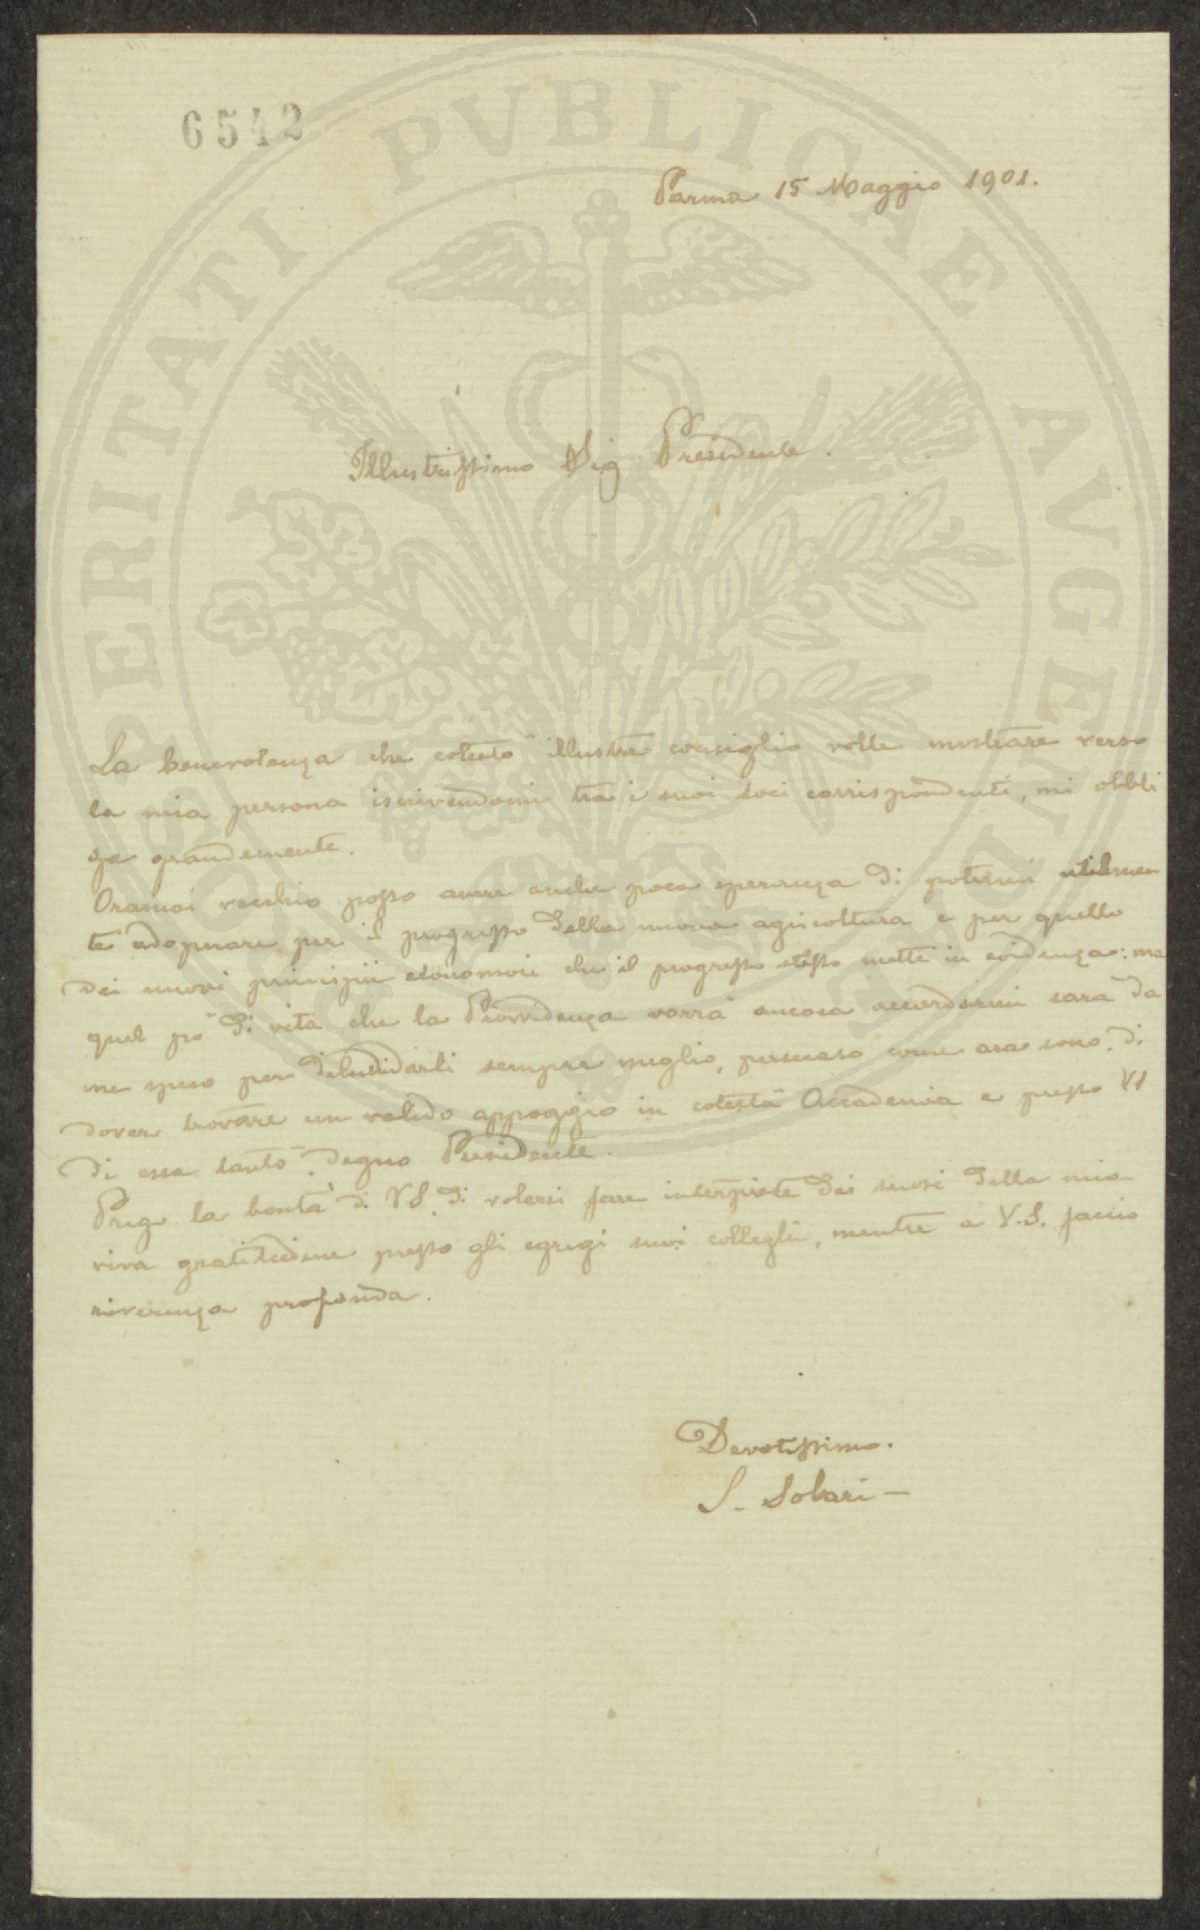 6542
Parma 15 Maggio 1901.
Illustrissimo Sig Presidente.
La benevolenza che cotesto illustre consiglio volle mostrare verso
la mia persona iscrivendomi tra i suoi soci corrispondenti, mi obbli
ga grandemente.
Oramai vecchio posso avere anche poca speranza di potermi utilmen
te adoperare per il progresso della nuova agricoltura e per quello
dei nuovi principii economici che il progresso stesso mette in evidenza: ma
quel po' di vita che la Provvidenza vorrà ancora accordarmi sarà da
me speso per dilucidarli sempre meglio, persuaso come ora sono, di
dover trovare un valido appoggio in cotesta Accademia e presso VS
di essa tanto degno Presidente.
Prego la bontà di VS. di volersi fare interprete dei sensi della mia
viva gratitudine presso gli egregi suoi colleghi, mentre a V.S. faccio
riverenza profonda.
Devotissimo.
S. Solari
PROSPERITATI PVBLICAE AVGENDAE